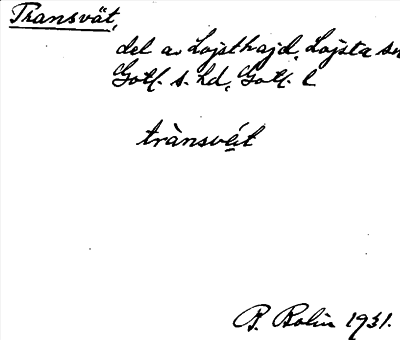 Transvät,
del av Lojsthajd, Lojsta sn
Gotl. s. hd, Gotl. l
trànsvét
B. Bolin 1931.